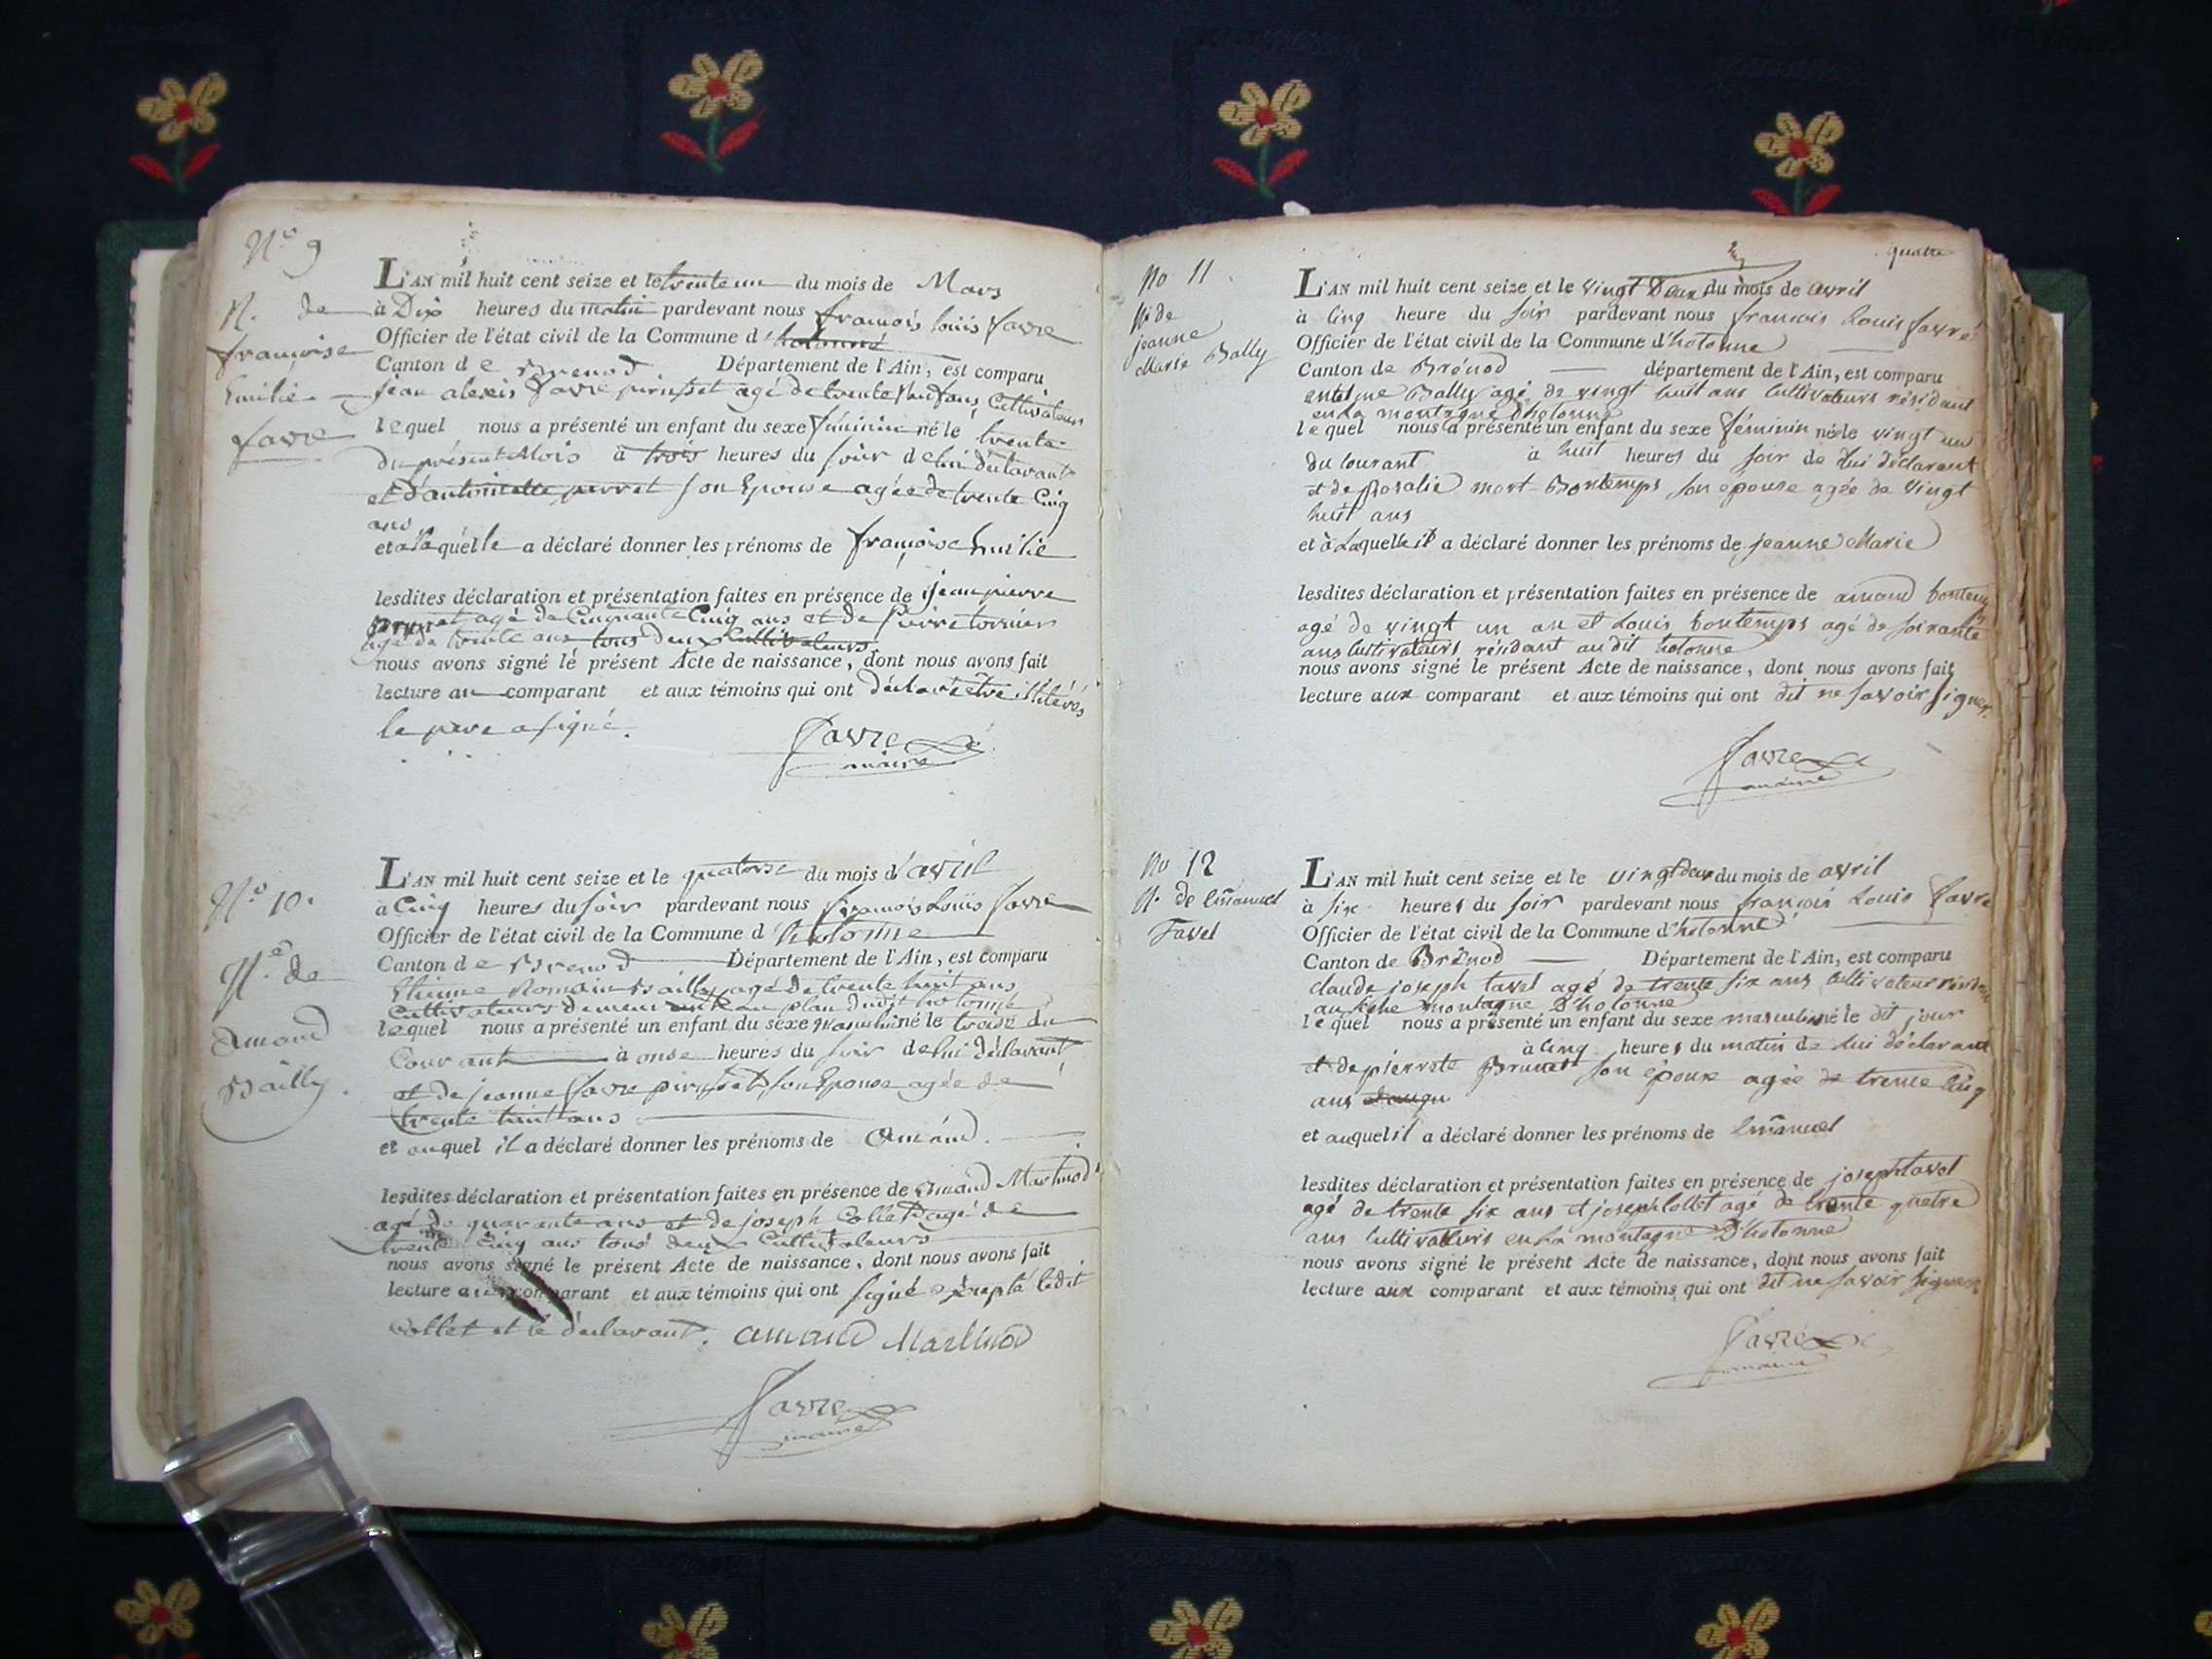 N.º 9
N. de
françoise
Emilie
favre
L'AN mil huit cent seize et le trente un du mois de Mars
à Dix heures du matin pardevant nous françois louis favre
Officier de l'état civil de la Commune d'hotonne
Canton de Brenod Département de l'Ain, est comparu
jean alexis favre agé de trente huit ans, Cultivateur
lequel nous a présenté un enfant du sexe féminin né le trente
du présent Mois à trois heures du soir de lui déclarant
et d'antoinette perret son Epouse agée de trente Cinq
ans
et a laquelle a déclaré donner les prénoms de françoise Emilie
lesdites déclaration et présentation faites en présence de jean pierre
agé de Cinquante Cinq ans et de Pierre
agé de trente ans tous deux Cultivateurs
nous avons signé le présent Acte de naissance, dont nous avons fait
lecture au comparant et aux témoins qui ont déclaré être illiterés
le pere a signé.
favre
maire
N.º 10.
N.e de
Amand
Bailly.
L'AN mil huit cent seize et le quatorse du mois d'avril
à Cinq heures du soir pardevant nous françois Louis favre
Officier de l'état civil de la Commune d'hotonne
Canton de Brenod Département de l'Ain, est comparu
Etienne Romain Bailly agé de trente huit ans
Cultivateurs demeurant au plan dudit hotonne
lequel nous a présenté un enfant du sexe Masculin né le treise du
Courant à onse heures du soir de lui déclarant
et de jeanne favre son Epouse agée de
trente huit ans
et auquel il a déclaré donner les prénoms de Amand.
lesdites déclaration et présentation faites en présence de Amand Martinod
agé de quarante ans et de joseph Collet agé de
trente cinq ans tous deux Cultivateurs
nous avons signé le présent Acte de naissance, dont nous avons fait
lecture aux comparant et aux témoins qui ont signé excepté ledit
Collet et le déclarant. amand Martinod
favre
maire
quatre
No 11
N. de
jeanne
Marie Bally
L'AN mil huit cent seize et le vingt Deux du mois de avril
à cinq heure du soir pardevant nous françois Louis favre
Officier de l'état civil de la Commune d'hotonne
Canton de Brénod département de l'Ain, est comparu
antoine Bally agé de vingt huit ans Cultivateurs résidant
en La montagne d'hotonne
lequel nous a présenté un enfant du sexe féminin né le vingt un
du courant à huit heures du soir de lui déclarant
et de Rosalie mort-Bontemps son épouse agée de vingt
huit ans
et à Laquelle il a déclaré donner les prénoms de jeanne Marie
lesdites déclaration et présentation faites en présence de amand bontemps
agé de vingt un an et Louis bontemps agé de soixante
ans Cultivateurs résidant audit hotonne
nous avons signé le présent Acte de naissance, dont nous avons fait
lecture aux comparant et aux témoins qui ont dit ne savoir signer.
favre
maire
No 12
N. de Emanuel
Tavel
L'AN mil huit cent seize et le vingt deux du mois de avril
à six heures du soir pardevant nous françois Louis favre
Officier de l'état civil de la Commune d'hotonne
Canton de Brénod Département de l'Ain, est comparu
claude joseph tavel agé de trente six ans Cultivateur résidant
montagne D'hotonne
lequel nous a présenté un enfant du sexe masculin né le dit jour
à cinq heures du matin de lui déclarant
et de pierrete Brunet son épouse agée de trente cinq
ans
et auquel il a déclaré donner les prénoms de Emanuel
lesdites déclaration et présentation faites en présence de joseph tavel
agé de trente six ans et joseph Collet agé de trente quatre
ans Cultivateurs en La montagne D'hotonne
nous avons signé le présent Acte de naissance, dont nous avons fait
lecture aux comparant et aux témoins qui ont dit ne savoir signer
favre
maire